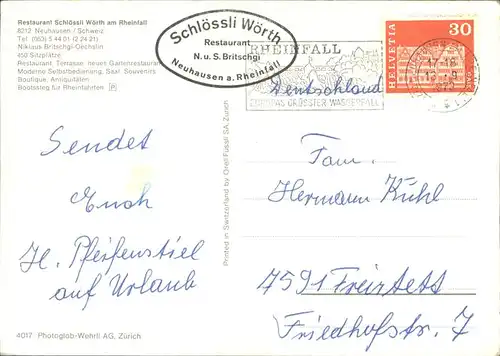 Restaurant Schlössli Wörth am Rheinfall
8212 Neuhausen / Schweiz
Tel (053) 5 44 01 (2 24 21)
Niklaus Britschgi-Oechslin
450 Sitzplätze
Restaurant Terrasse, neues Gartenrestaurant
Moderne Selbstbedienung, Saal, Souvenirs
Boutique, Antiquitäten
Bootssteg für Rheinfahrten P
Schlössli Wörth
Restaurant
N. u. S. Britschgi
Neuhausen a. Rheinfall
RHEINFALL
EUROPAS GRÖSSTER WASSERFALL
HELVETIA
30
Deutschland
Sendet
Euch
H. Pfeifenstiel
auf Urlaub
Printed in Switzerland by Orell Füssli SA, Zürich
Fam.
Hermann Kühl
7591 Freistett
Friedhofstr. 7
4017 Photoglob-Wehrli AG, Zürich